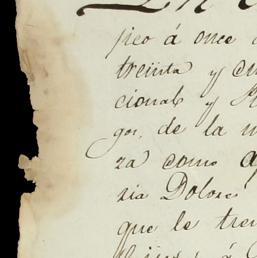 En
pco á once
treinta y cu
cional y P
gos, de la m
za como ap
ria Dolore
que le tre